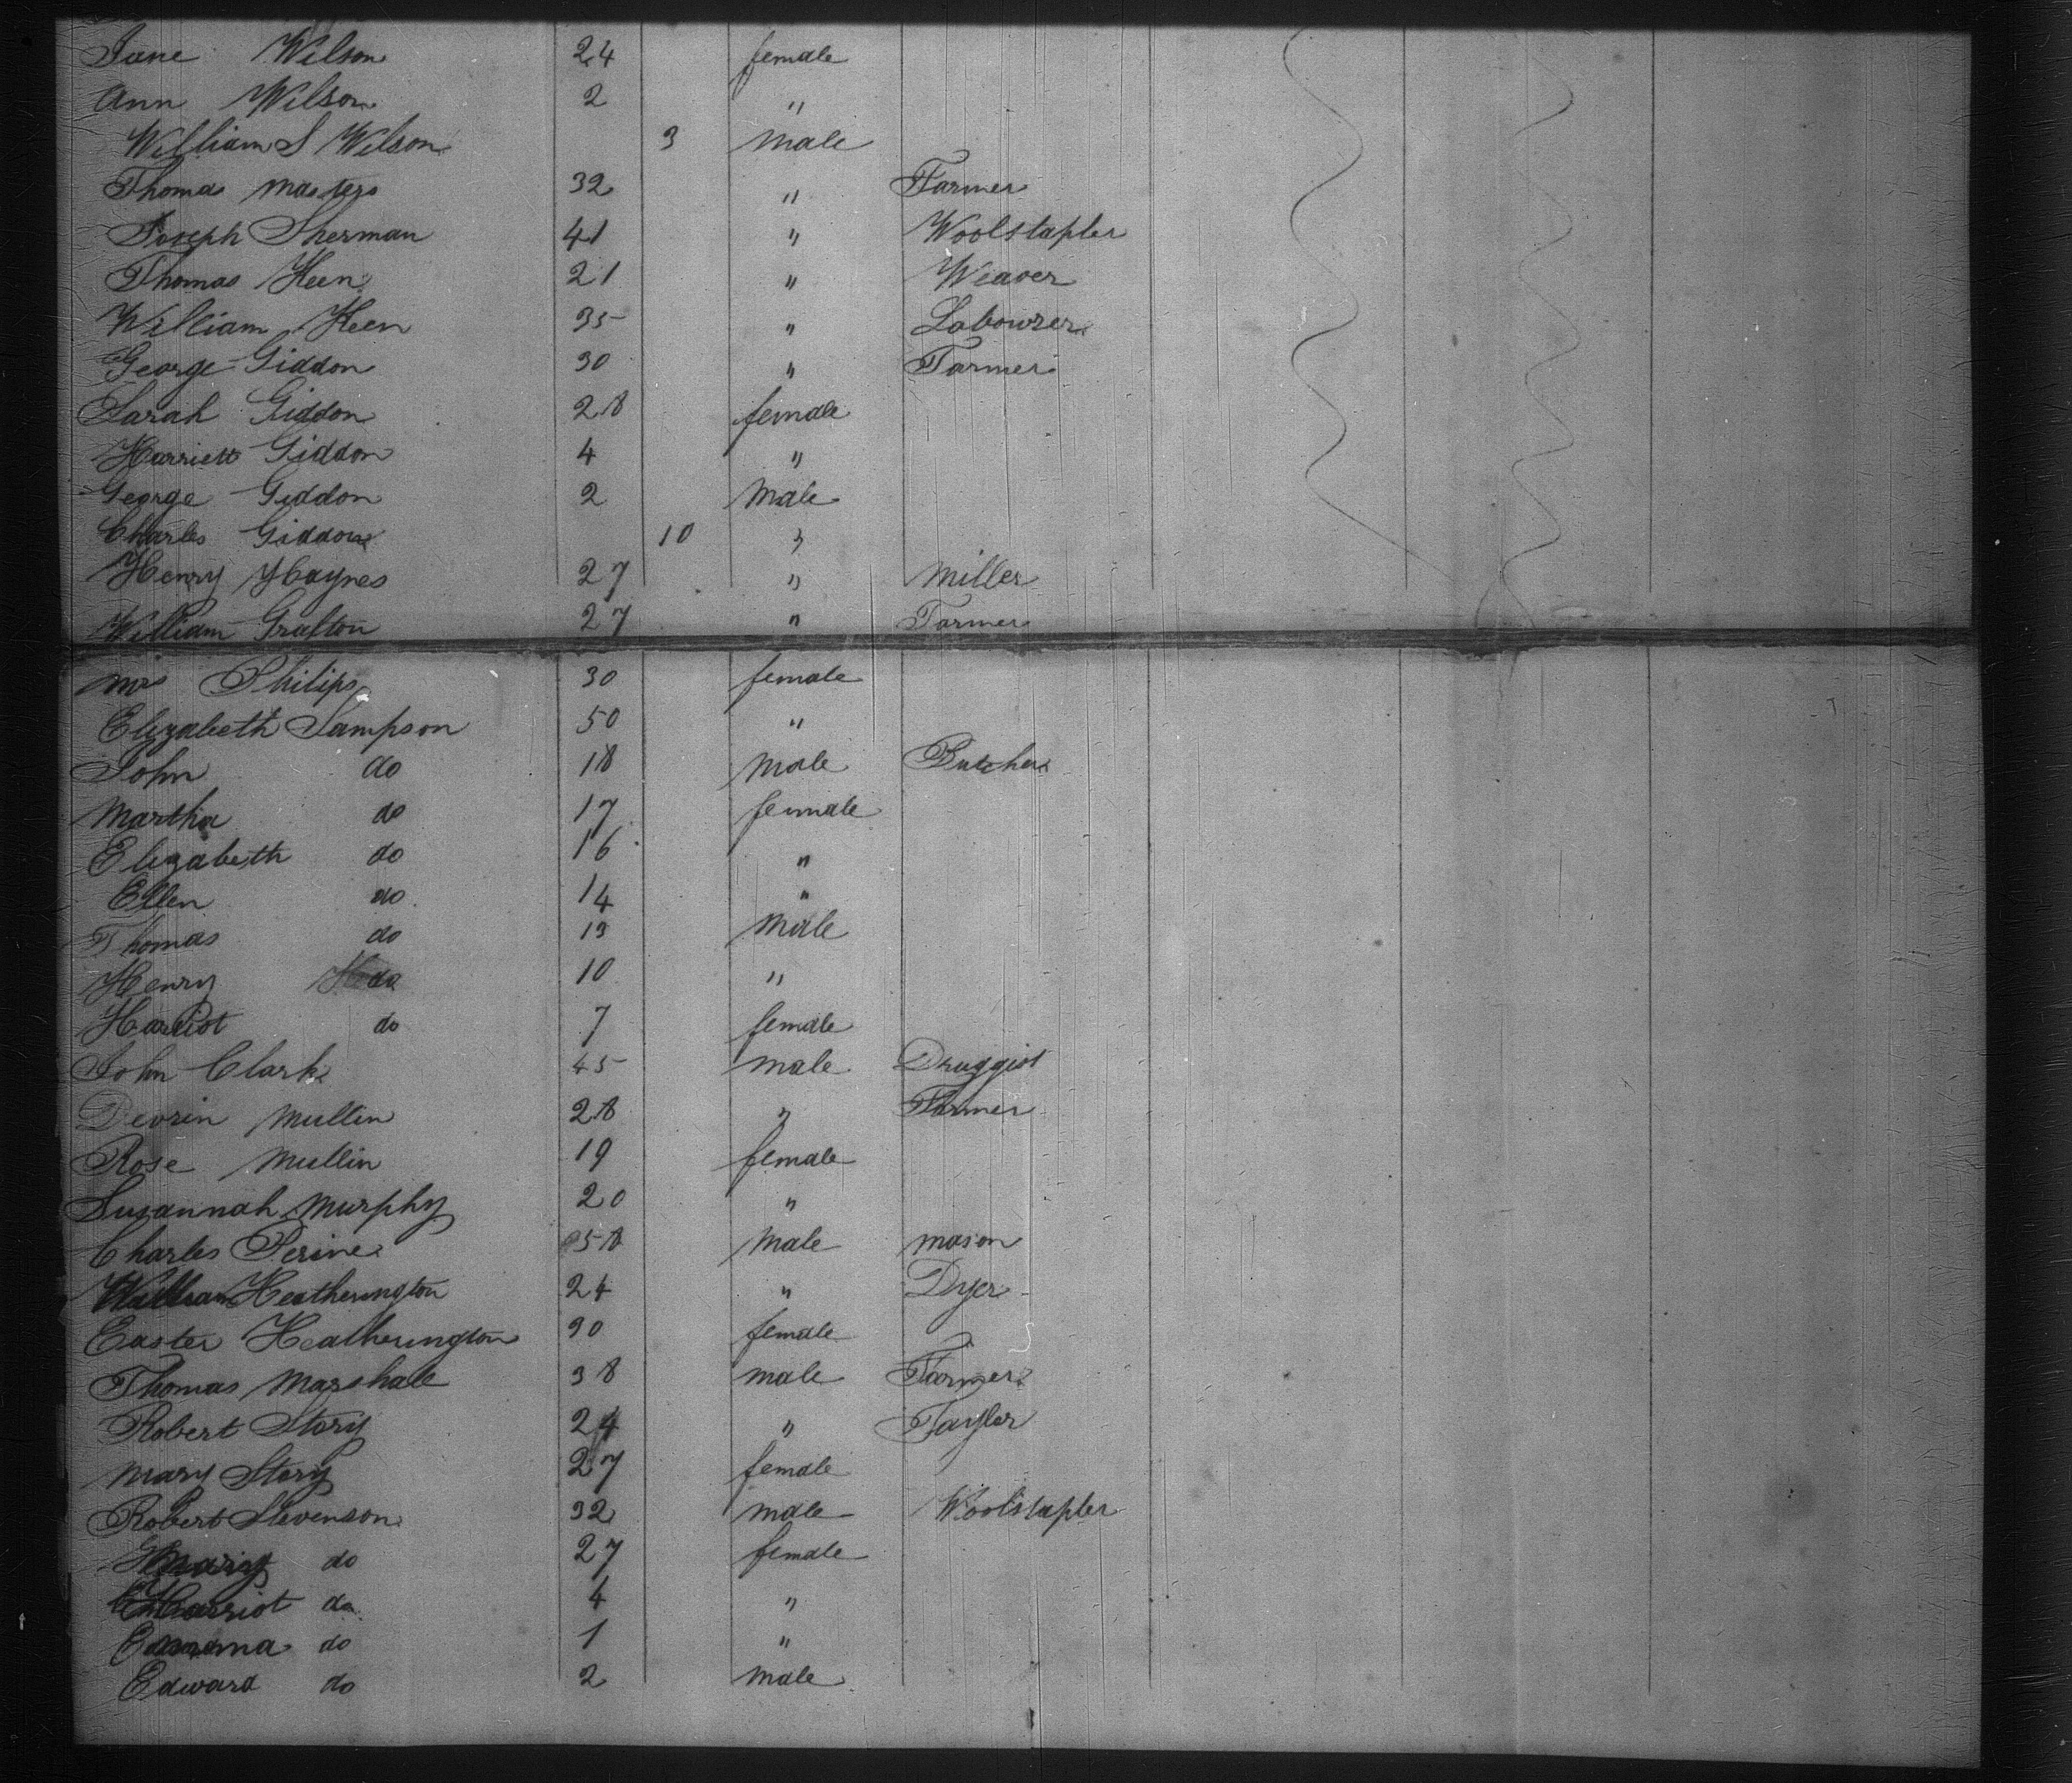 Jane Wilson 24 female
Ann Wilson 2 "
William S Wilson 3 Male
Thomas Masters 32 " Farmer
Joseph Sherman 41 " Woolstapler
Thomas Keen 21 " Weaver
William Keen 35 " Labourer
George Giddon 30 " Farmer
Sarah Giddon 28 female
Harriett Giddon 4 "
George Giddon 2 Male
Charles Giddon 10 "
Henry Haynes 27 " Miller
William Grafton 27 " Farmer
Mrs Philips 30 female
Elizabeth Sampson 50 "
John do 18 Male Butcher
Martha do 17 female
Elizabeth do 16 "
Ellen do 14 "
Thomas do 13 Male
Henry do 10 "
Harriot do 7 female
John Clark 45 Male Druggist
Devrin Mullin 28 " Farmer
Rose Mullin 19 female
Susannah Murphy 20 "
Charles Perine 58 Male mason
William Heatherington 24 " Dyer
Easter Heatherington 30 female
Thomas Marshale 38 male Farmer
Robert Story 24 " Tayler
Mary Story 27 female
Robert Stevenson 32 male Woolstapler
Mary do 27 female
Harriot do 4 "
Emma do 1 "
Edward do 2 Male